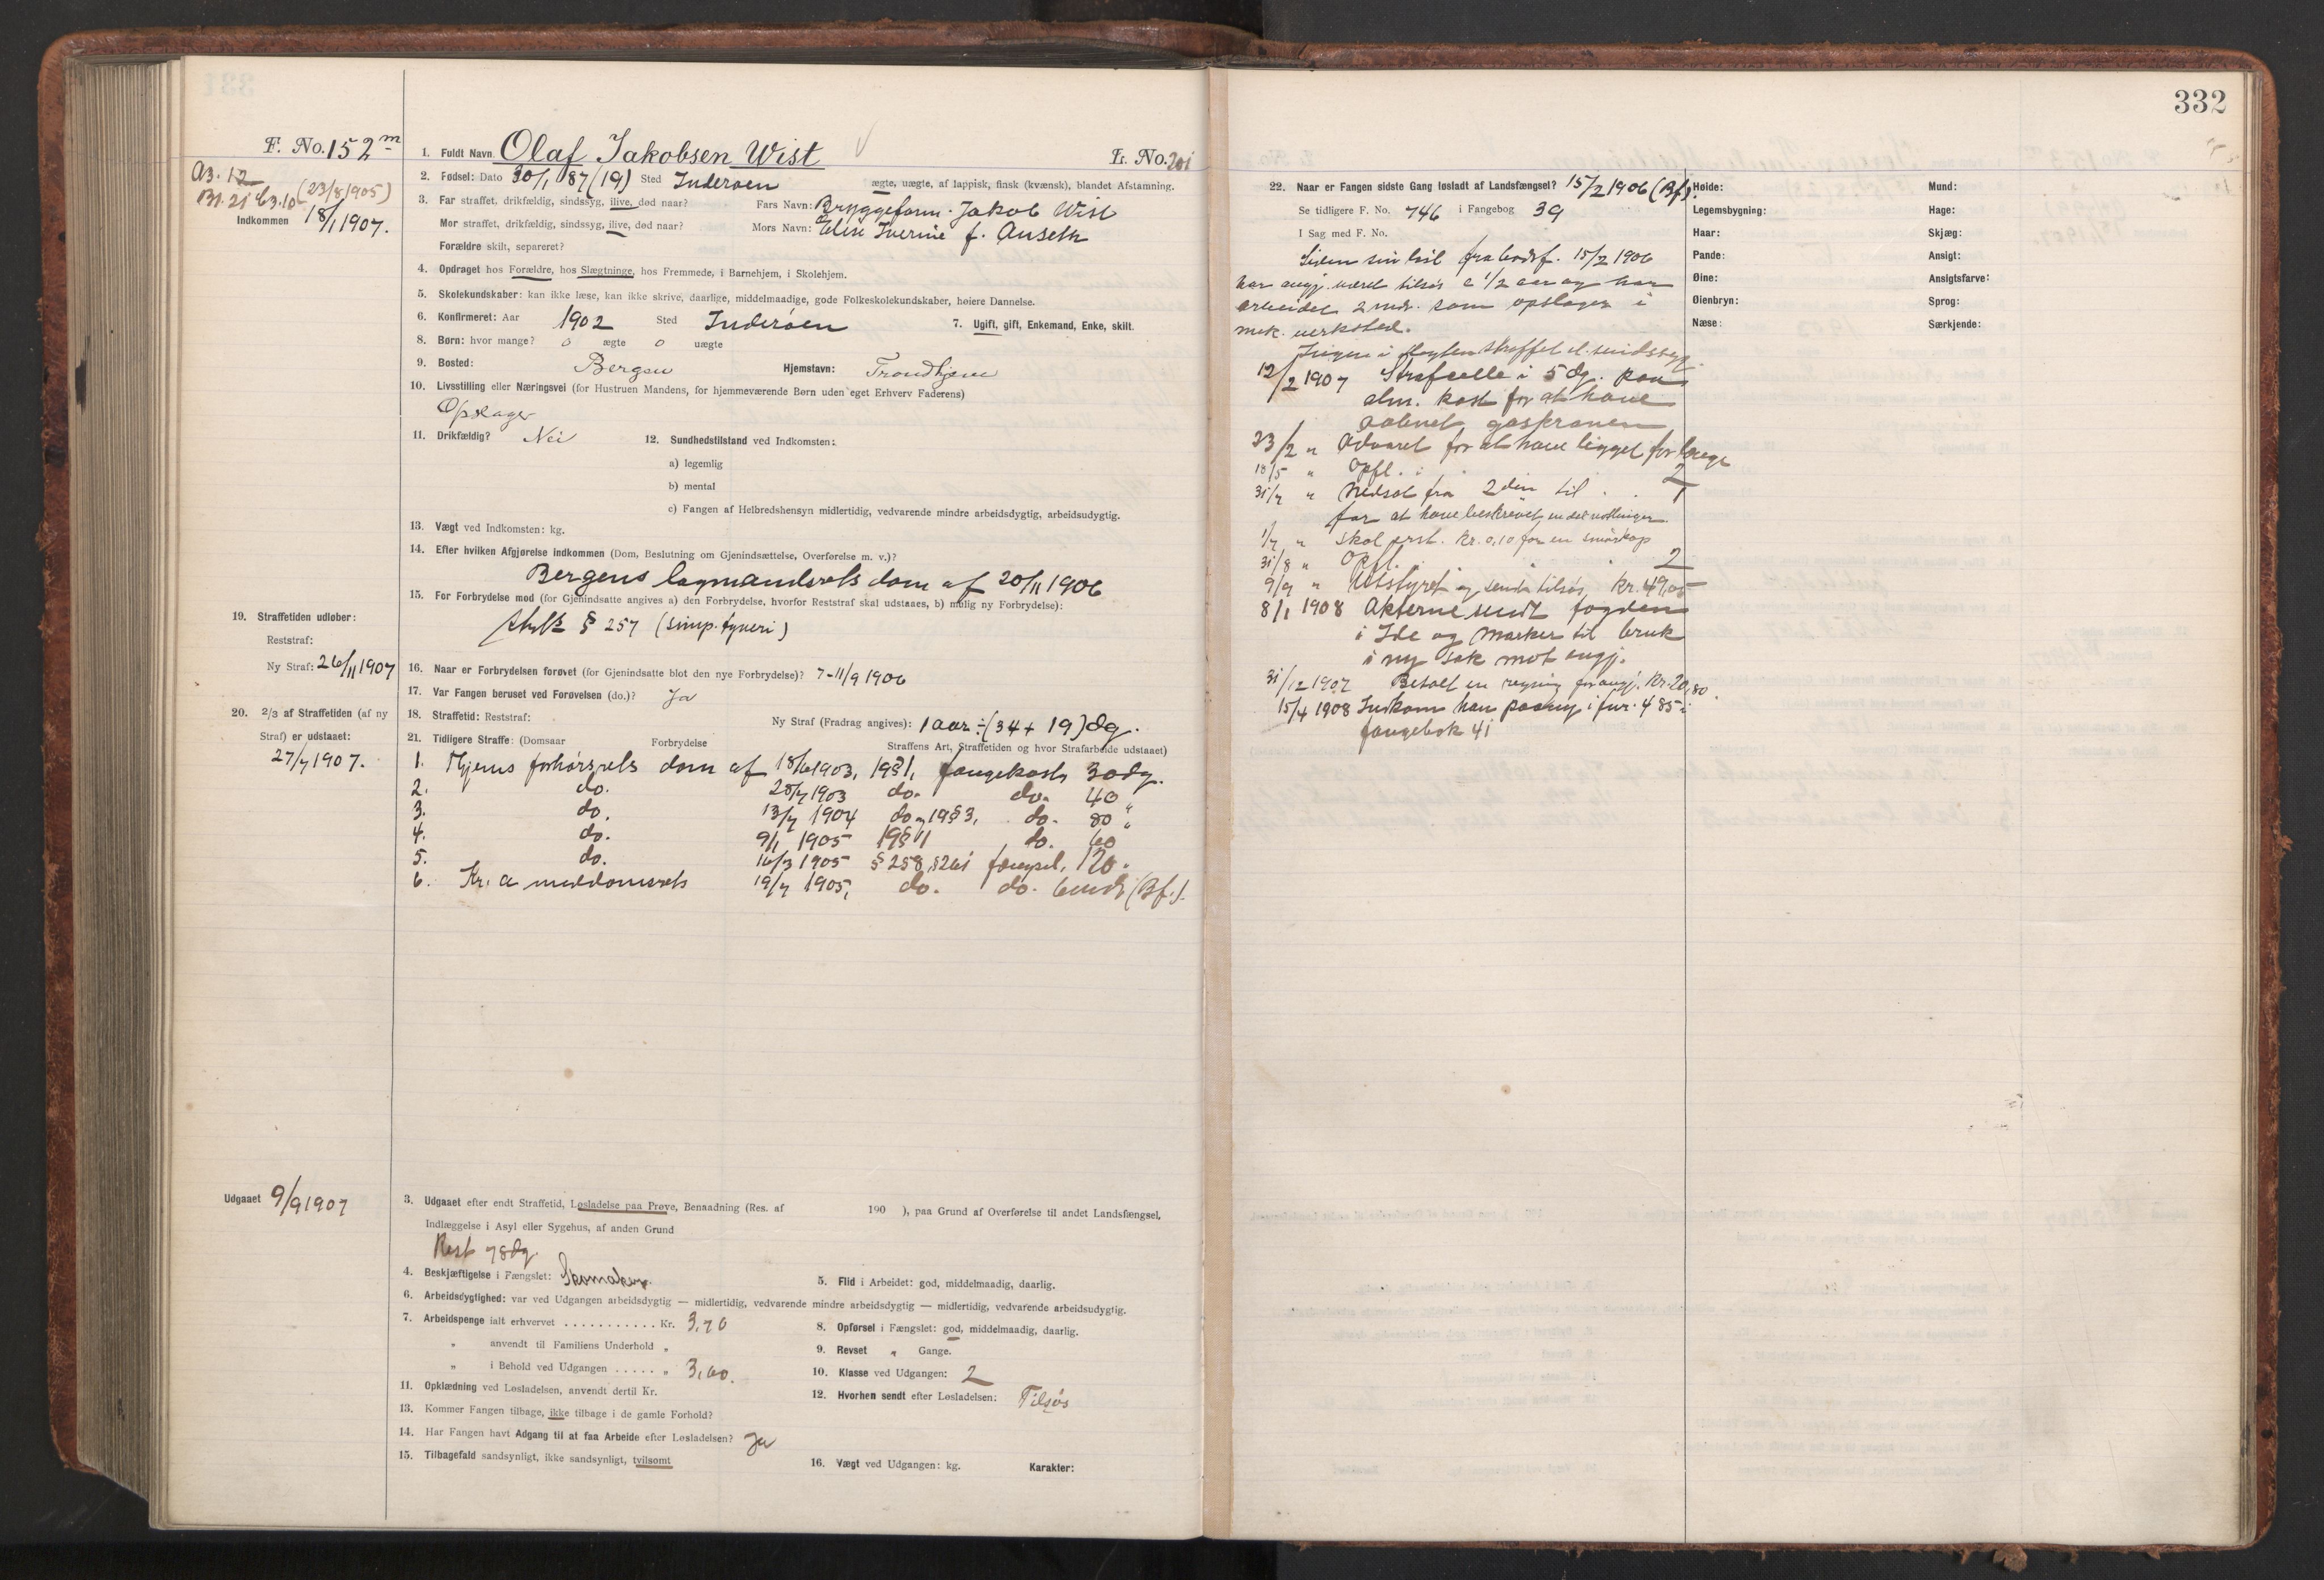 332
F. No. 152 m
1. Fuldt Navn Olaf Jakobsen Wist
L. No. 201
A3. 12
B1. 21 C3. 10 (23/8 1905)
Indkommen 18/1 1907.
2. Fødsel: Dato 30/1 87 (19) Sted Inderøen ægte, uægte, af lappisk, finsk (kvænsk), blandet Afstamning.
3. Far straffet, drikfældig, sindssyg, ilive, død naar? Fars Navn: Bryggeform. Jakob Wist
Mor straffet, drikfældig, sindssyg, ilive, død naar? Mors Navn: Elise Iverine f. Auseth
Forældre skilt, separeret?
4. Opdraget hos Forældre, hos Slægtninge, hos Fremmede, i Barnehjem, i Skolehjem.
5. Skolekundskaber: kan ikke læse, kan ikke skrive, daarlige, middelmaadige, gode Folkeskolekundskaber, høiere Dannelse.
6. Konfirmeret: Aar 1902 Sted Inderöen 7. Ugift, gift, Enkemand, Enke, skilt.
8. Børn: hvor mange? 0 ægte 0 uægte
9. Bosted: Bergen Hjemstavn: Trondhjem
10. Livsstilling eller Næringsvei (for Hustruen Mandens, for hjemmeværende Børn uden eget Erhverv Faderens)
Opslager
11. Drikfældig? Nei 12. Sundhedstilstand ved Indkomsten:
a) legemlig
b) mental
c) Fangen af Helbredshensyn midlertidig, vedvarende mindre arbeidsdygtig, arbeidsudygtig.
13. Vægt ved Indkomsten: kg.
14. Efter hvilken Afgjørelse indkommen (Dom, Beslutning om Gjenindsættelse, Overførelse m. v.)?
Bergens lagmandsrets dom af 20/11 1906
15. For Forbrydelse mod (for Gjenindsatte angives a) den Forbrydelse, hvorfor Reststraf skal udstaaes, b) mulig ny Forbrydelse):
§ 257 (simp. tyveri)
19. Straffetiden udløber:
Reststraf:
Ny Straf: 26/11 1907
16. Naar er Forbrydelsen forøvet (for Gjenindsatte blot den nye Forbrydelse)? 7-11/9 1906
17. Var Fangen beruset ved Forøvelsen (do.)? Ja
20. 2/3 af Straffetiden (af ny
Straf) er udstaaet:
27/7 1907.
18. Straffetid: Reststraf: Ny Straf (Fradrag angives): 1 aar ÷ (34 + 19) dg.
21. Tidligere Straffe: (Domsaar Forbrydelse Straffens Art, Straffetiden og hvor Strafarbeide udstaaet)
1. Thjems forhörsrets dom af 18/6 1903, 19§1, fangekost 30 dg.
2. do. 28/7 1903 do. do. 40 "
3. do. 13/7 1904 do. og 19§3, do. 80 "
4. do. 9/1 1905 19§1 do. 60
5. do. 16/3 1905 § 258, § 261 fængsel, 120.
6. Kr.a meddomsrets 19/7 1905, do. do. 6 mdr (Bf.).
Udgaaet 9/9 1907
3. Udgaaet efter endt Straffetid, Løsladelse paa Prøve, Benaadning (Res. af 190 ), paa Grund af Overførelse til andet Landsfængsel,
Indlæggelse i Asyl eller Sygehus, af anden Grund
Rest 78 dg.
4. Beskjæftigelse i Fængslet: Skomaker. 5. Flid i Arbeidet: god, middelmaadig, daarlig.
6. Arbeidsdygtighed: var ved Udgangen arbeidsdygtig — midlertidig, vedvarende mindre arbeidsdygtig — midlertidig, vedvarende arbeidsudygtig.
7. Arbeidspenge ialt erhvervet . . . . . . . . . . . Kr. 3,70 8. Opførsel i Fængslet: god, middelmaadig, daarlig.
" anvendt til Familiens Underhold " 9. Revset " Gange.
" i Behold ved Udgangen . . . . . " 3,60. 10. Klasse ved Udgangen: 2
11. Opklædning ved Løsladelsen, anvendt dertil Kr. 12. Hvorhen sendt efter Løsladelsen: Tilsjøs
13. Kommer Fangen tilbage, ikke tilbage i de gamle Forhold?
14. Har Fangen havt Adgang til at faa Arbeide efter Løsladelsen? Ja
15. Tilbagefald sandsynligt, ikke sandsynligt, tvilsomt
16. Vægt ved Udgangen: kg. Karakter:
22. Naar er Fangen sidste Gang løsladt af Landsfængsel? 15/2 1906 (Bf).
Se tidligere F. No. 746 i Fangebog 39
I Sag med F. No.
Siden sin løsl. fra bodsf. 15/2 1906
har angj. været tilsjøs c 1/2 aar og har
arbeidet 2 mdr. som opslager i
mek. verksted.
Ingen i slegten straffet el. sindssyg.
12/2 1907 Strafcelle i 5 dg. paa
alm. kost for at have
aabnet gaskranen
23/2 " Advaret for at have ligget for længe
18/5 " Opfl. : 2
31/7 " Nedsat fra 2den til . . 1
for at have beskrevet en del
1/7 " Skal erst. Kr. 0,10 for en
31/8 " Opfl. . . 2
9/9 " Utstyret og sendt tilsjøs Kr. 49,05
8/1 1908 Akterne sendt fogden
i Ide og Marker til bruk
i ny sak mot angj.
31/12 1907 Betalt en regning for angj. Kr. 20,80.
15/4 1908 Indkom han paany i fnr. 485 i
fangebok 41
Høide: Mund:
Legemsbygning: Hage:
Haar: Skjæg:
Pande: Ansigt:
Øine: Ansigtsfarve:
Øienbryn: Sprog:
Næse: Særkjende: